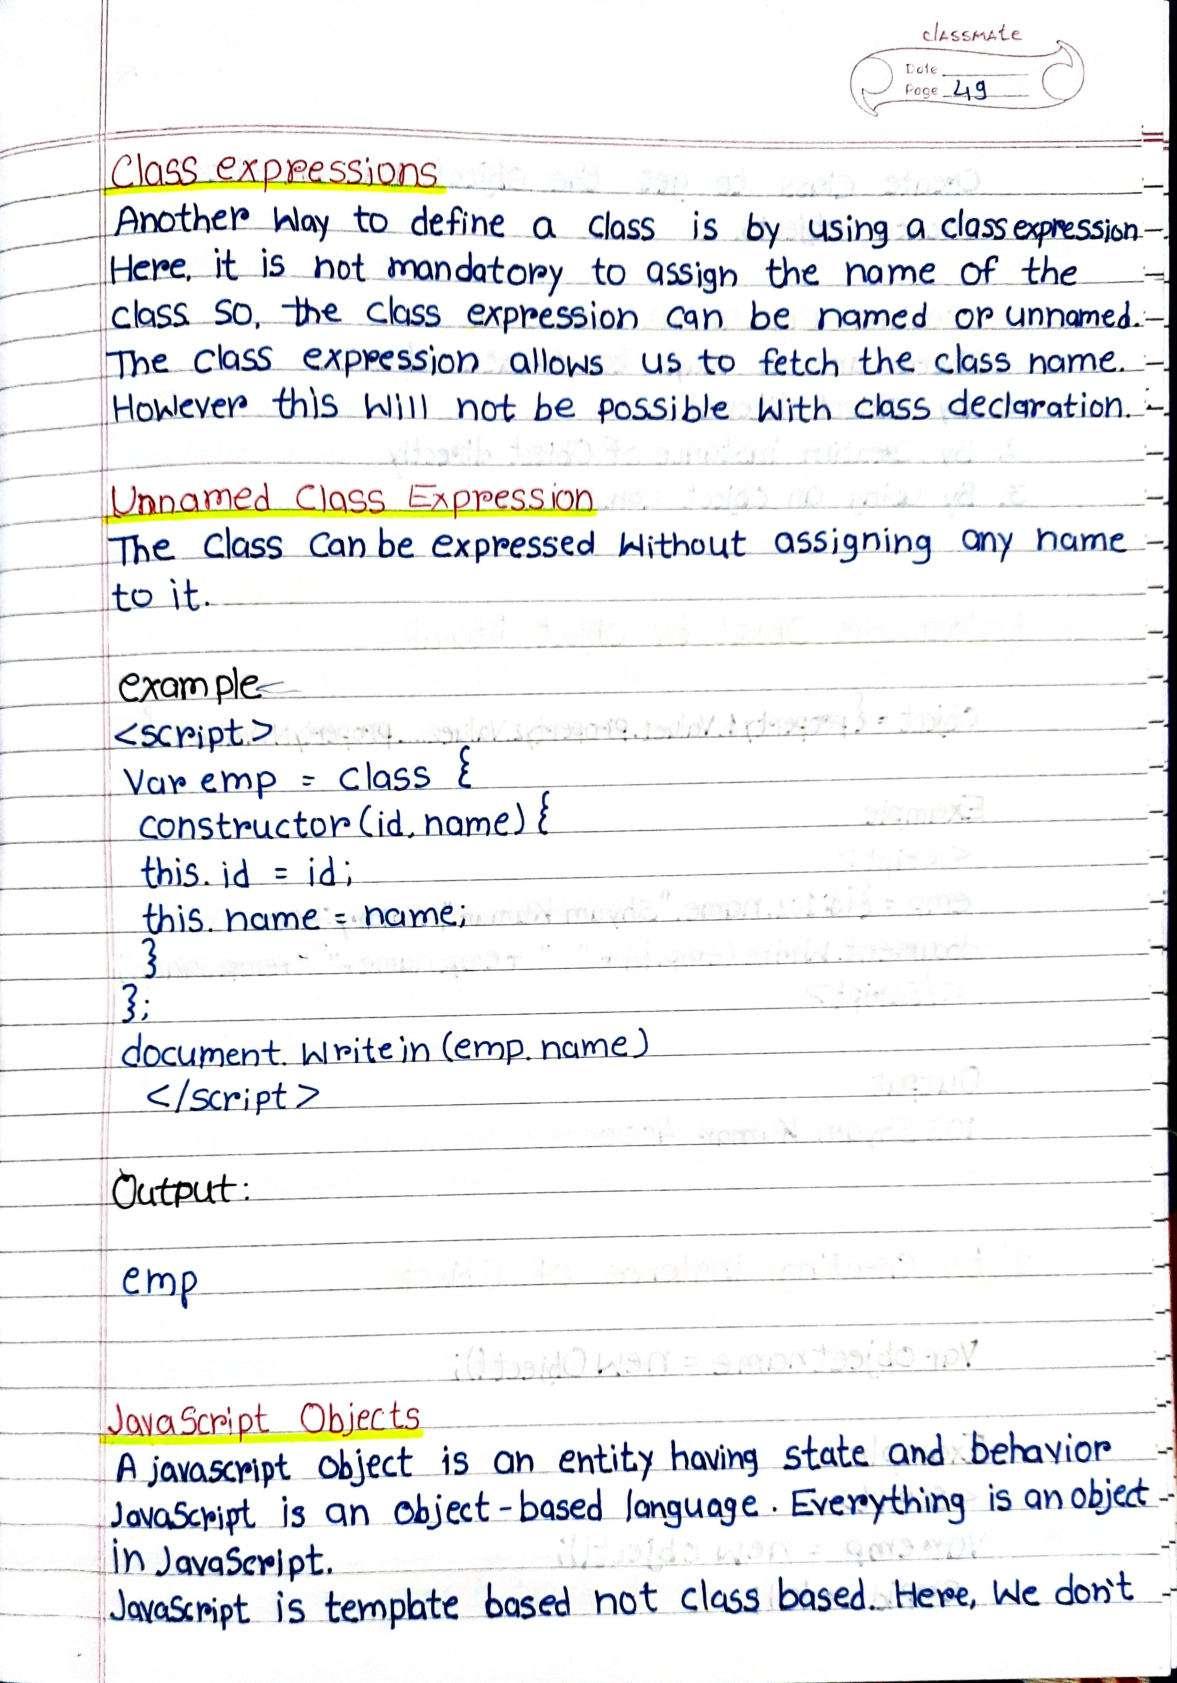 classmate
Date
Page 49
Class expressions
Another way to define a class is by using a class expression
Here, it is not mandatory to assign the name of the
class. So, the class expression can be named or unnamed.
The class expression allows us to fetch the class name.
However this will not be possible with class declaration.
Unnamed Class Expression
The class can be expressed without assigning any name
to it.
example
<script>
Var emp = class {
constructor(id, name) {
this.id = id;
this.name = name;
}
};
document.writein (emp.name)
</script>
Output:
emp
JavaScript Objects
A javascript object is an entity having state and behavior
JavaScript is an object-based language. Everything is an object
in JavaScript.
JavaScript is template based not class based. Here, we don't